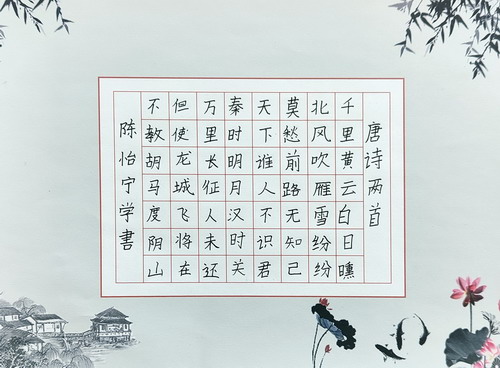 唐诗两首
千里黄云白日曛
北风吹雁雪纷纷
莫愁前路无知己
天下谁人不识君
秦时明月汉时关
万里长征人未还
但使龙城飞将在
不教胡马度阴山
陈怡宁学書